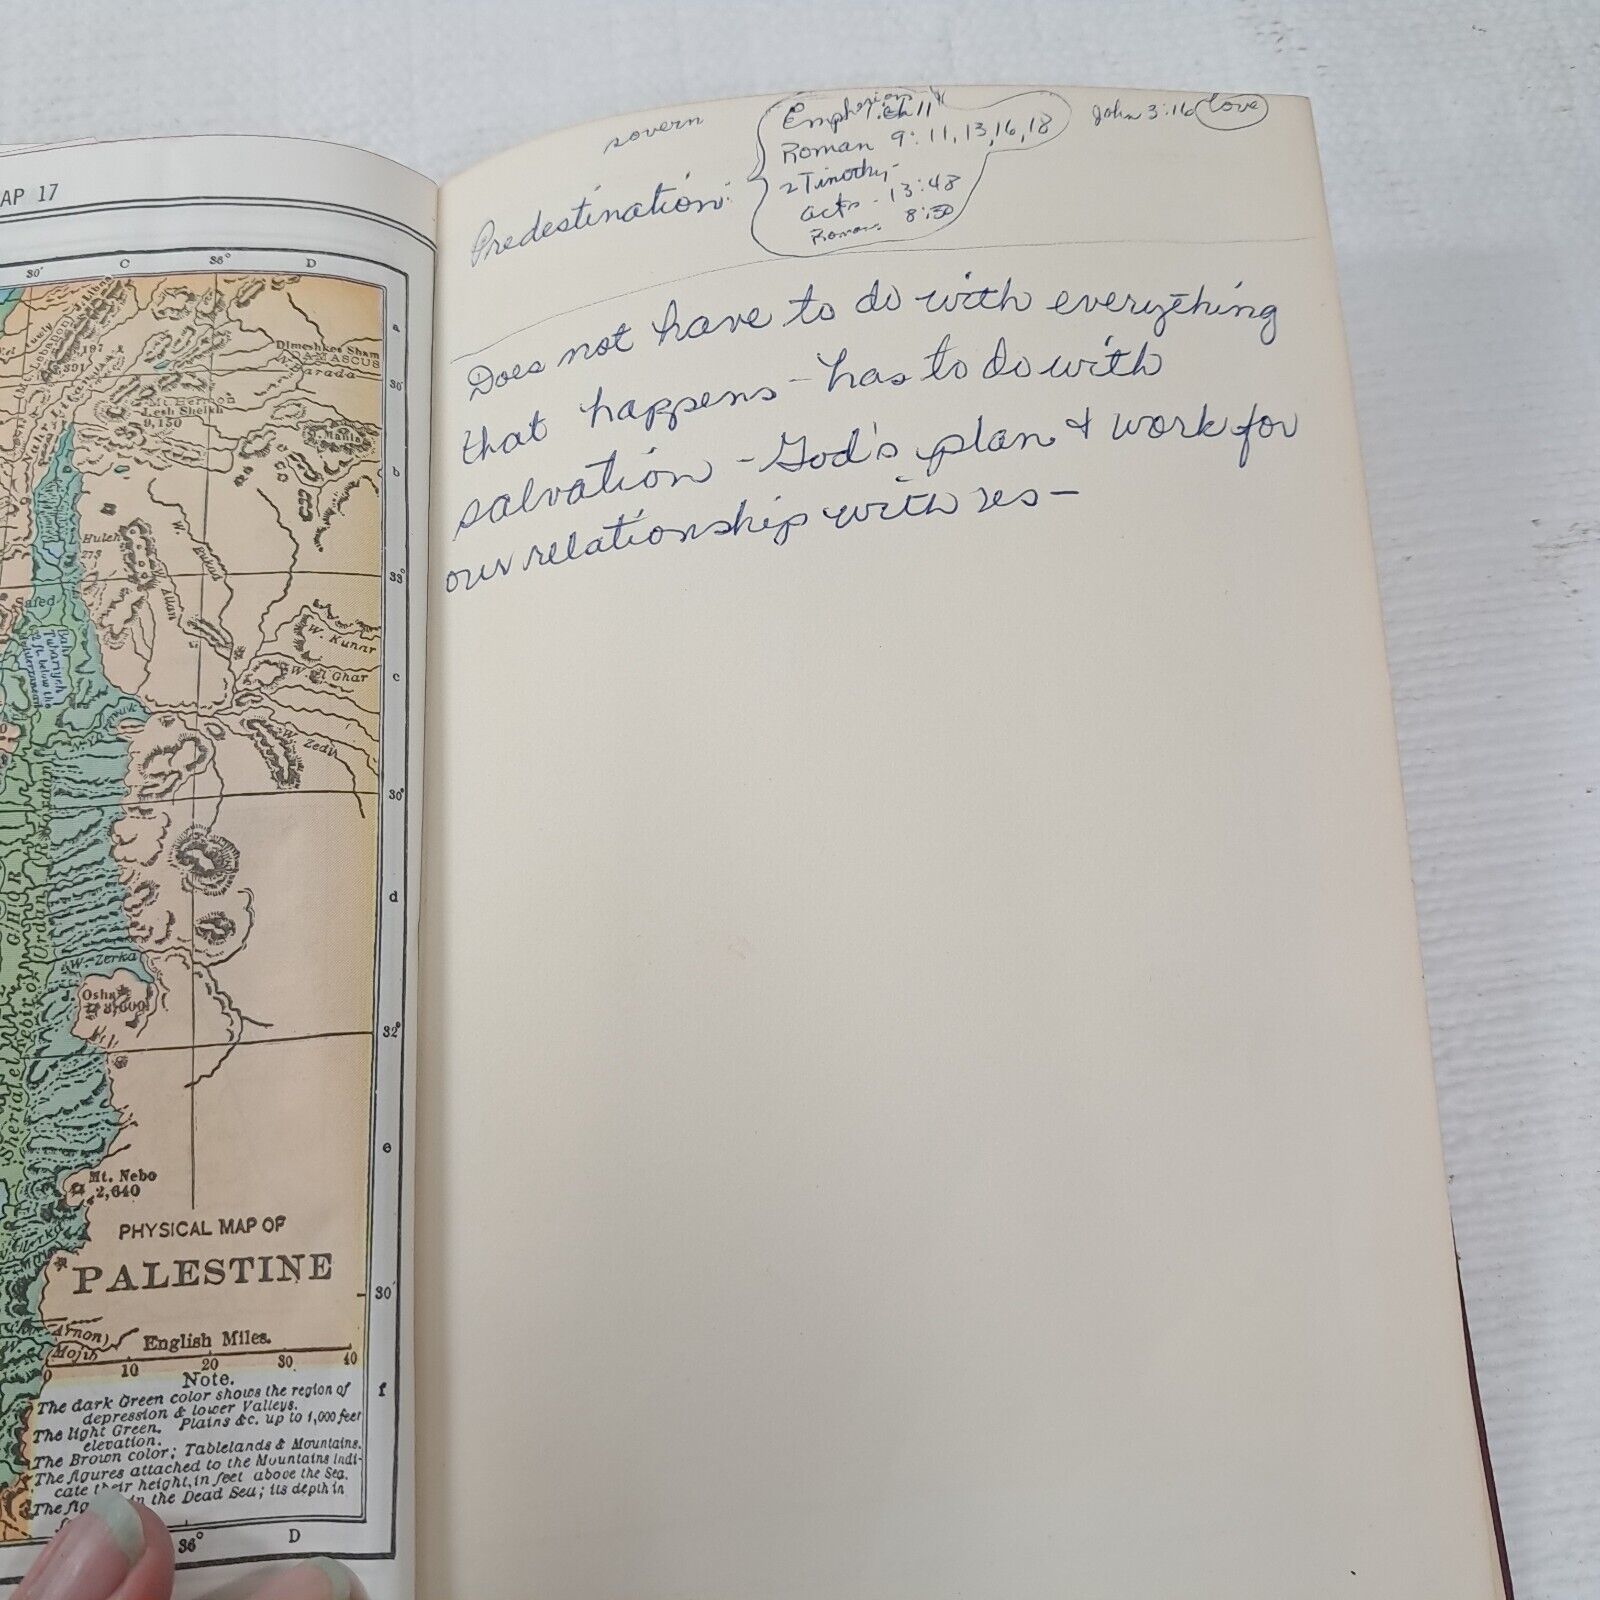 AP 17
30' C 36° D
a
Dimeshkes Sham
DAMASCUS
Barada
197
Mt Hermon
Lesh Sheikh
9,150
30'
b
W.
Huleh
273
Bukad
Allan
33°
Safed
Bahr
Tubariyeh
W. Kunar
W. el Ghar
c
W. Zedis
30'
GHOR
d
W. Zerka
Osha
3,600
32°
Sheriat el Kebir or Urdan R. (Jordan)
e
Mt. Nebo
2,640
PHYSICAL MAP OF
PALESTINE
30'
Arnon)
Mojib
English Miles.
0 10 20 30 40
f
Note.
The dark Green color shows the region of
depression & lower Valleys.
The light Green. Plains &c. up to 1,000 feet
elevation.
The Brown color; Tablelands & Mountains.
The figures attached to the Mountains indi-
cate their height, in feet above the Sea.
The fig in the Dead Sea; its depth in
36° D
sovern
Predestination:
Empherions
1. ch 11
Roman 9:11,13,16,18
2 Timothy-
acts - 13:48
Romans 8:30
John 3:16 love
Does not have to do with everything
that happens - has to do with
salvation - God's plan & work for
our relationship with us -